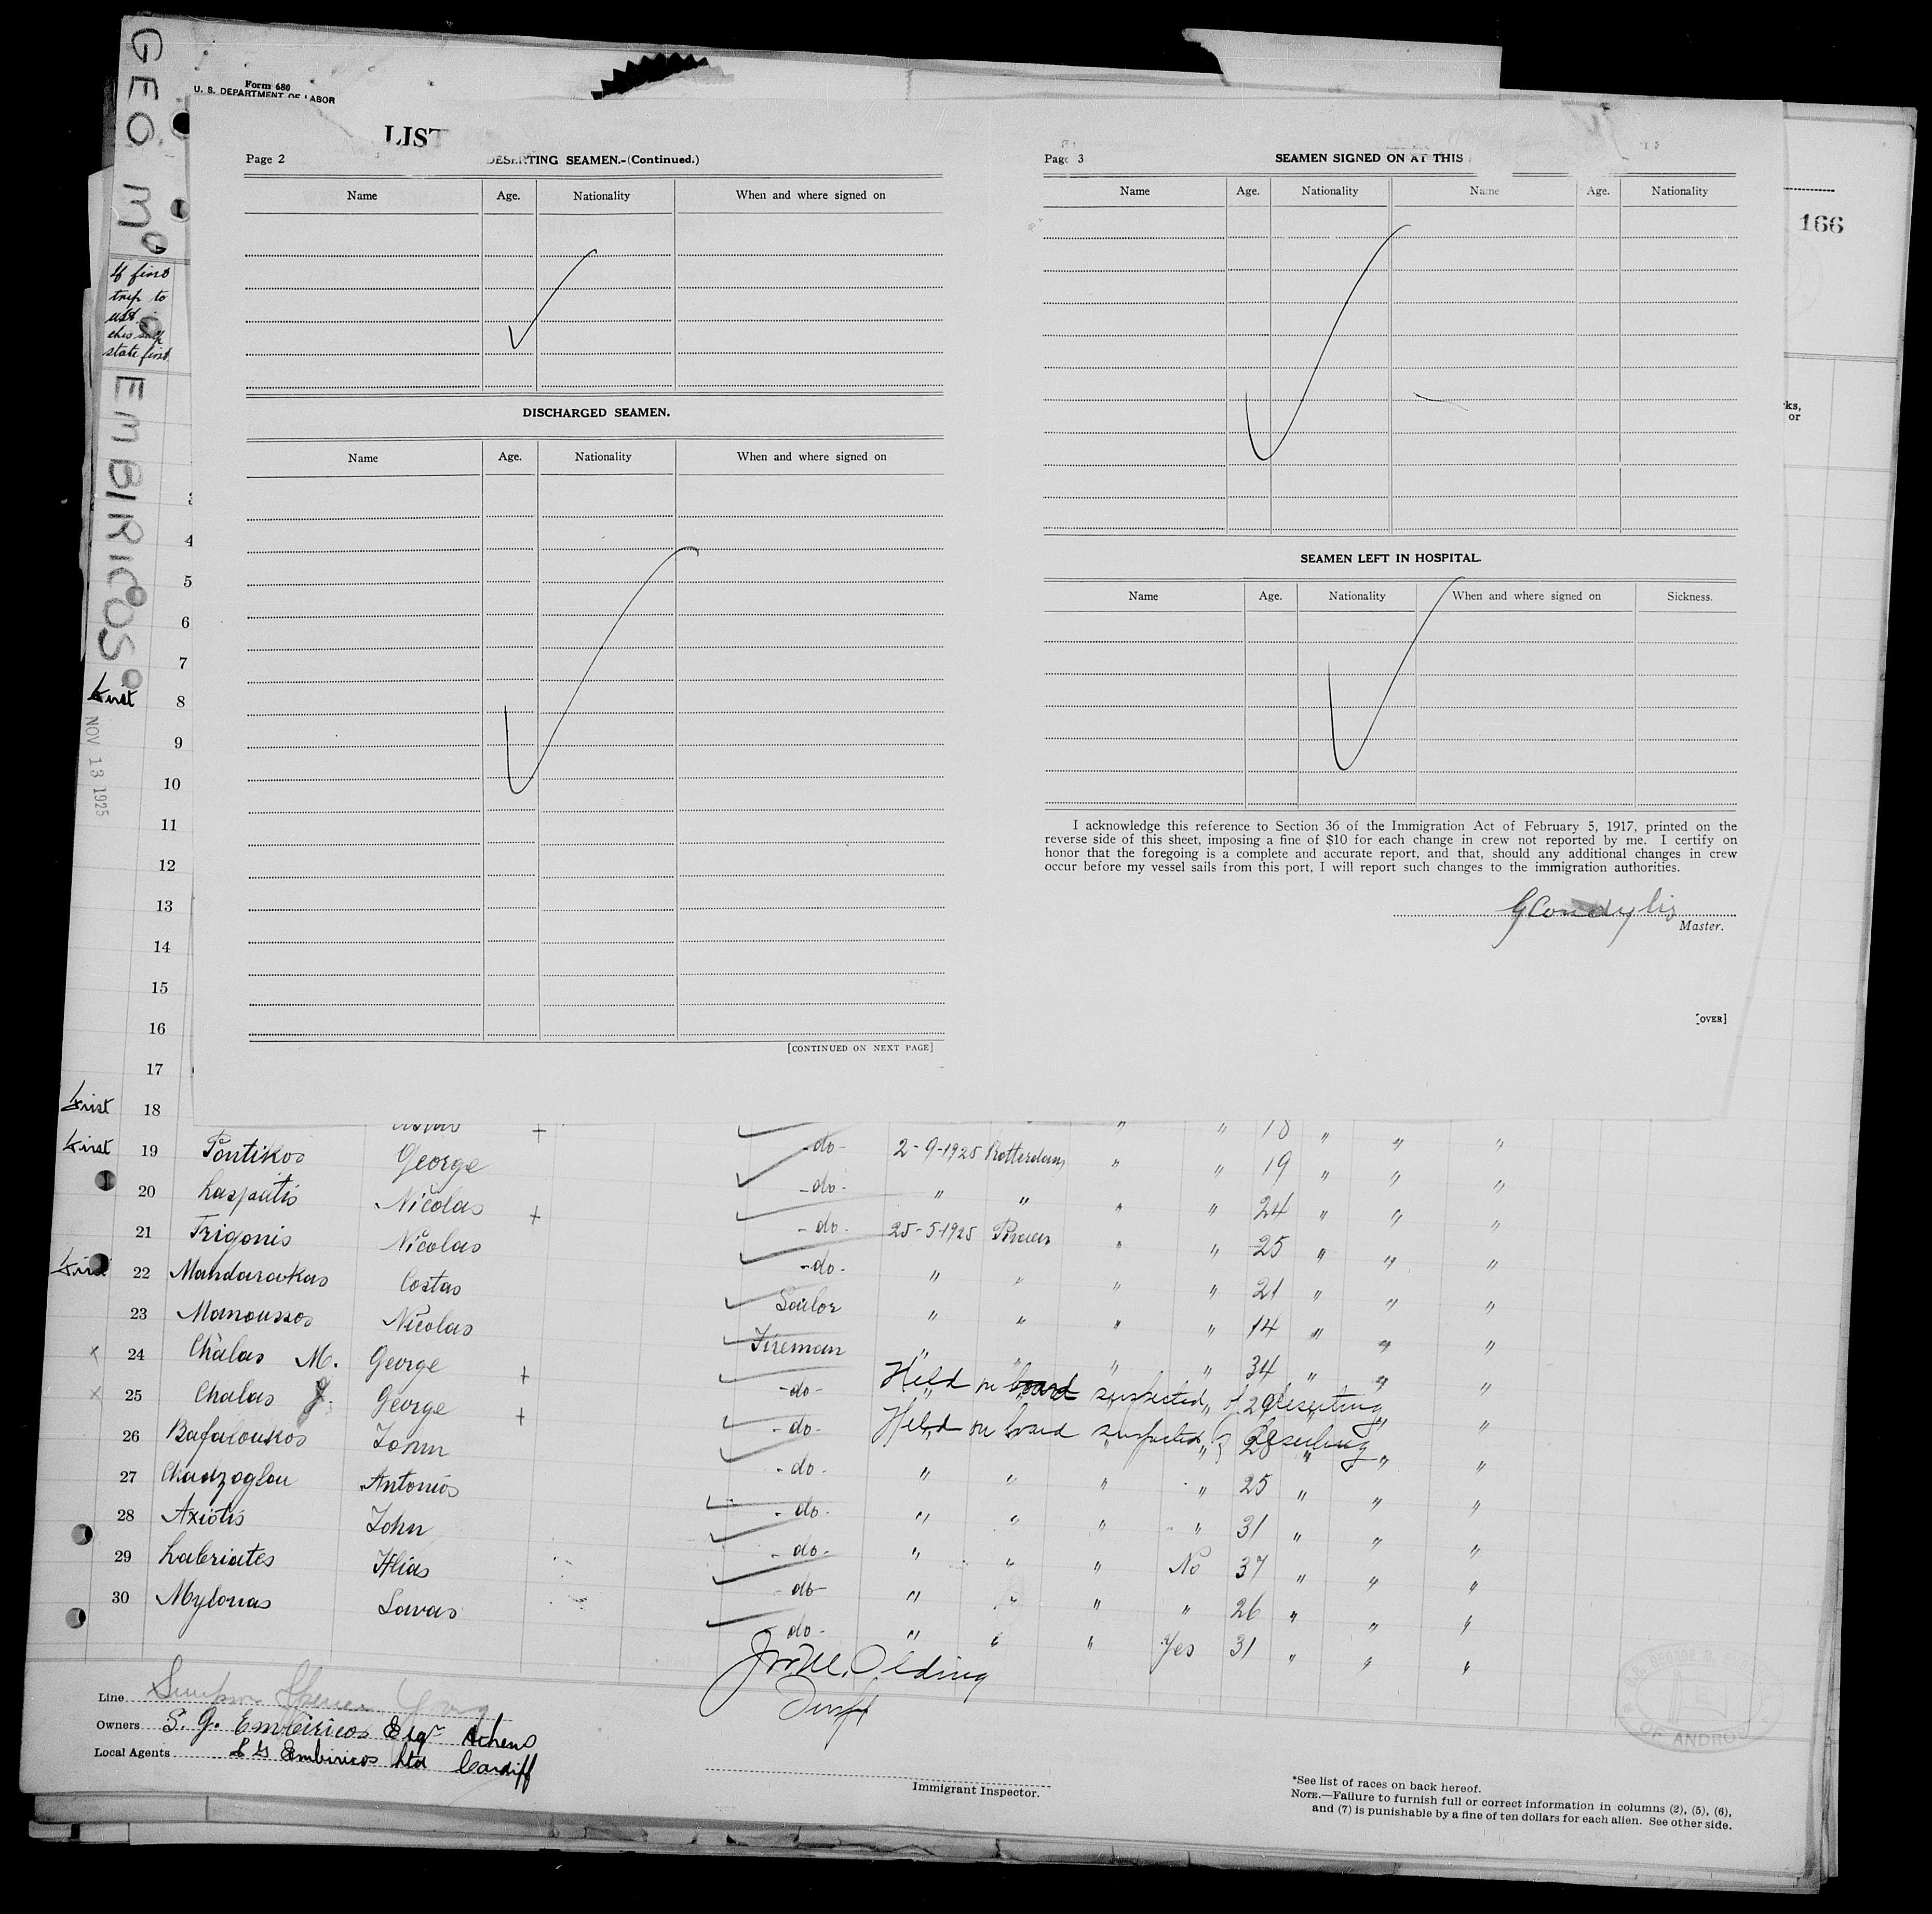 GEO M. EMBIRICOS
Form 680
U. S. DEPARTMENT OF LABOR
LIST
166
If first
trip to
this ship
state first
NOV 13 1925
Page 2
DESERTING SEAMEN.-(Continued.)
Name Age. Nationality When and where signed on
DISCHARGED SEAMEN.
Name Age. Nationality When and where signed on
[CONTINUED ON NEXT PAGE]
Page 3
SEAMEN SIGNED ON AT THIS
Name Age. Nationality Name Age. Nationality
SEAMEN LEFT IN HOSPITAL.
Name Age. Nationality When and where signed on Sickness.
I acknowledge this reference to Section 36 of the Immigration Act of February 5, 1917, printed on the
reverse side of this sheet, imposing a fine of $10 for each change in crew not reported by me. I certify on
honor that the foregoing is a complete and accurate report, and that, should any additional changes in crew
occur before my vessel sails from this port, I will report such changes to the immigration authorities.
G Condylis
Master.
[OVER]
ks,
or
4
5
6
7
First 8
9
10
11
12
13
14
15
16
17
First 18 " " 18 " " "
First 19 Pontikos George -do- 2-9-1925 Rotterdam " " 19 " " "
20 Laspatis Nicolas + -do- " " " " 24 " " "
21 Trigonis Nicolas -do- 25-5-1925 Piraeus " " 25 " " "
First 22 Mandarakas Costas -do- " " " " 21 " " "
23 Manoussos Nicolas Sailor " " " " 14 " " "
x 24 Chalas M. George + Fireman " " " " 34 " " "
x 25 Chalas J. George + -do- Held on board suspected of deserting "
26 Bafaloukos Ioann -do- Held on board suspected of deserting 28 " " "
27 Chadzoglou Antonios -do- " " " " 25 " " "
28 Axiotis John -do- " " " " 31 " " "
29 Labriates Ilias -do- " " " No 37 " " "
30 Mylonas Savas -do- " " " " 26 " " "
-do- " " " Yes 31 " " "
Jno M. Olding
Line Simpson Spence Young
Owners S. G. Embiricos Esqr Athens
Local Agents S G Embiricos Ltd Cardiff
Immigrant Inspector.
*See list of races on back hereof.
NOTE.—Failure to furnish full or correct information in columns (2), (5), (6),
and (7) is punishable by a fine of ten dollars for each alien. See other side.
OF ANDROS